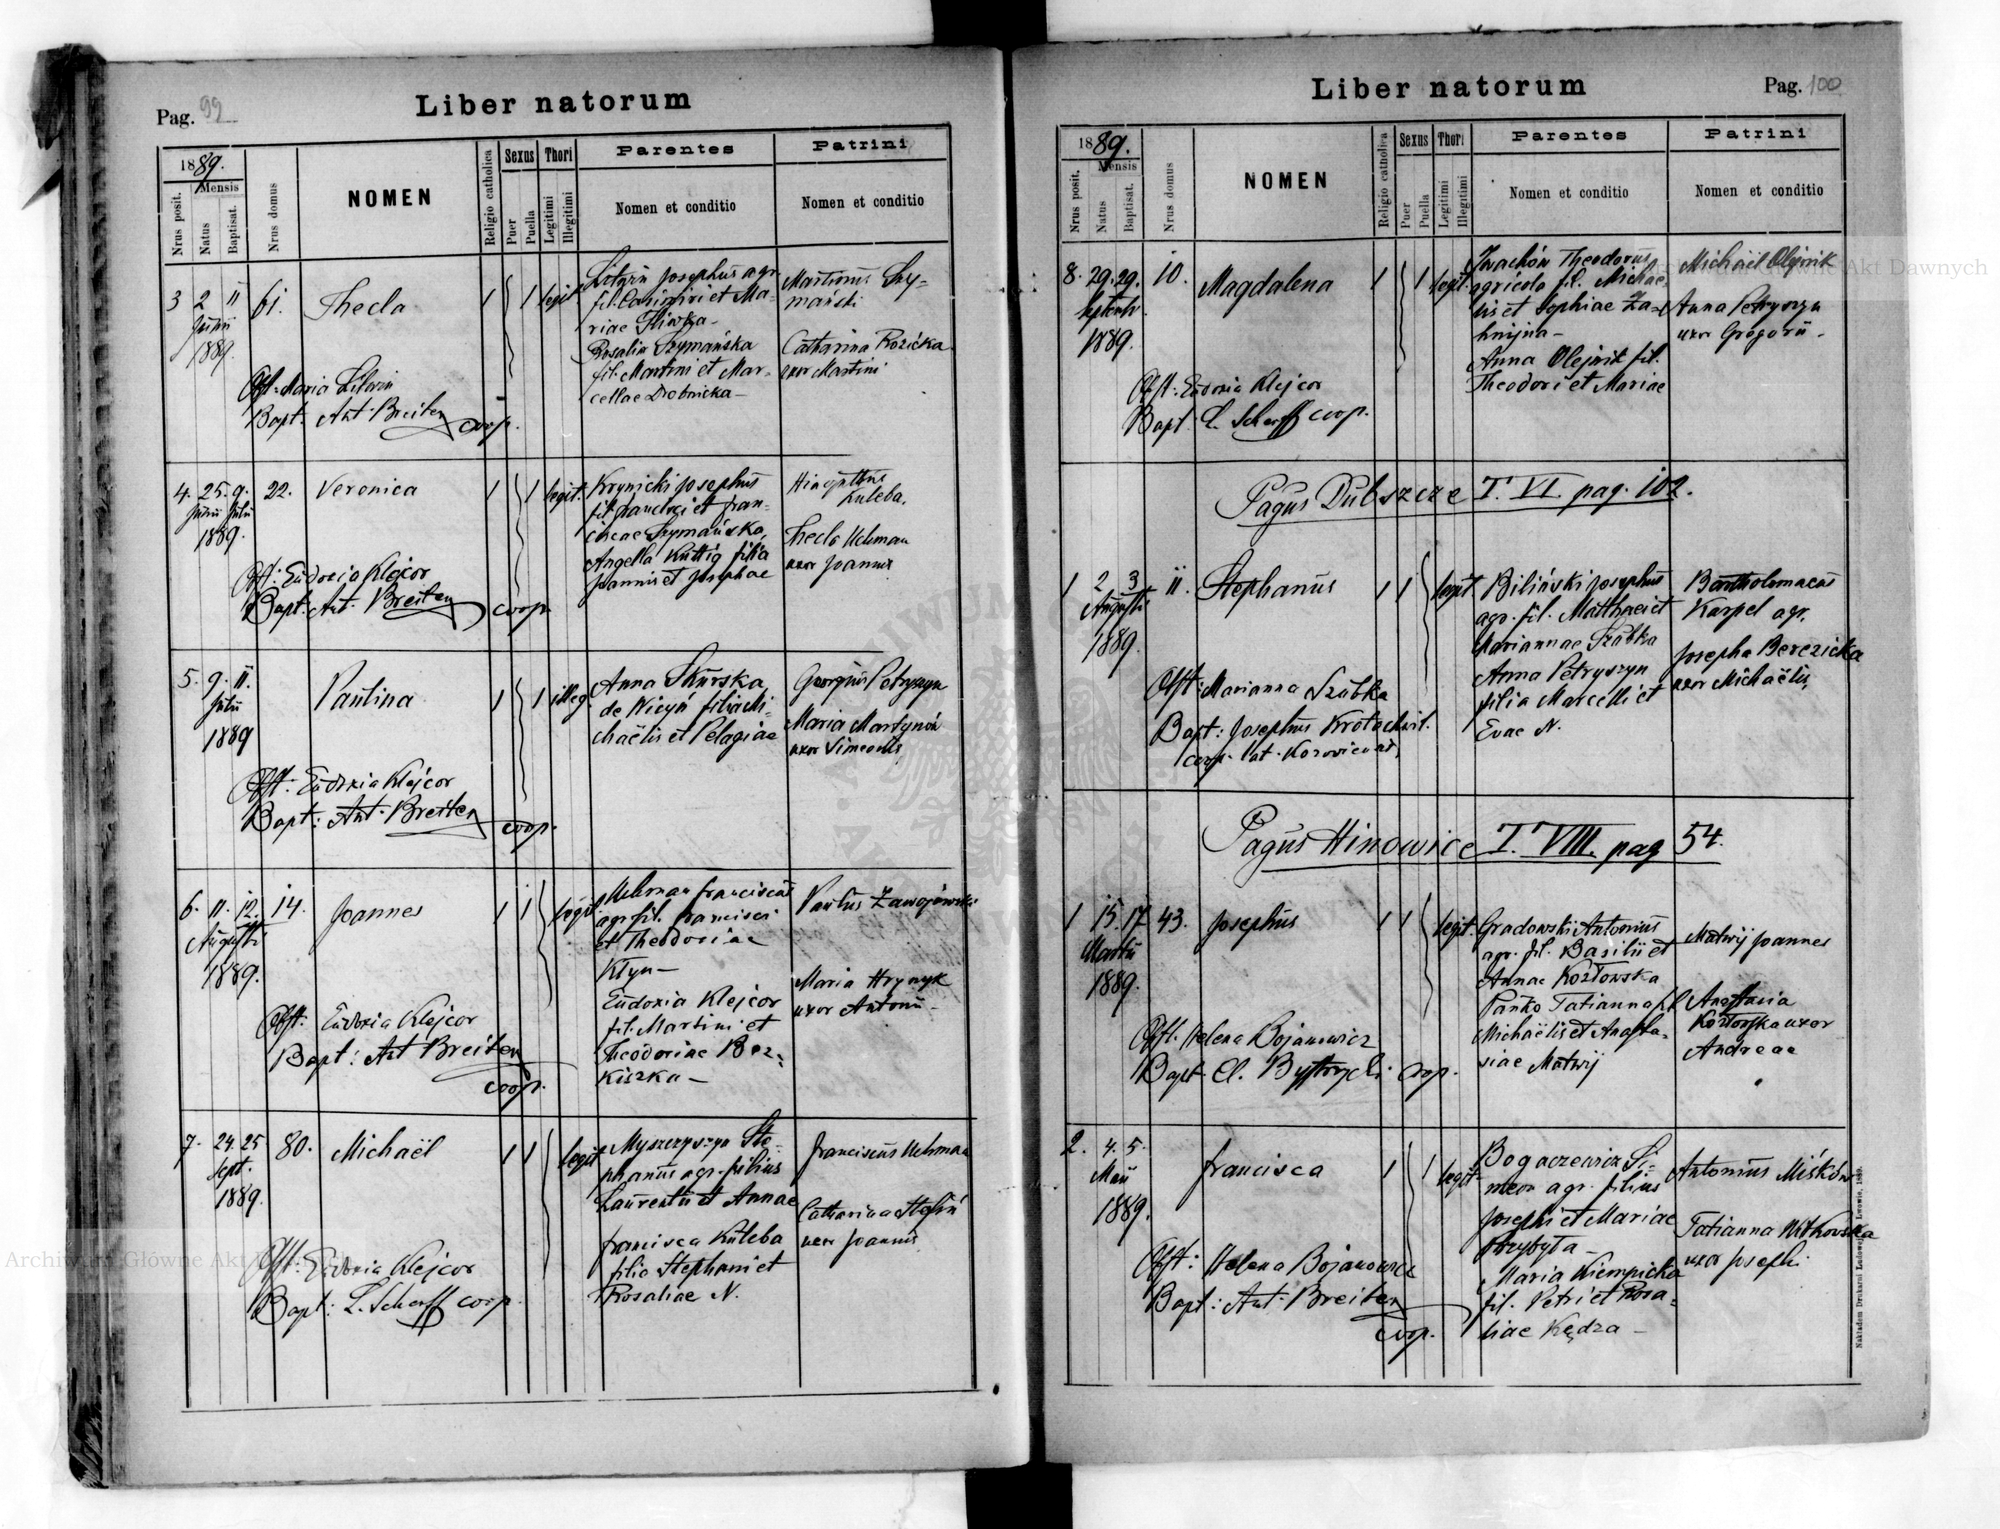 Pag. 99
Liber natorum
1889.
Mensis
Nrus posit.
Natus
Baptisat.
Nrus domus
NOMEN
Religio catholica
Sexus
Puer
Puella
Thori
Legitimi
Illegitimi
Parentes
Nomen et conditio
Patrini
Nomen et conditio
3 2 11 61. Thecla 1 1 legit.
Junii
1889.
Josephus agr.
fil. Casimiri et Ma-
riae Śliwka -
Rosalia Szymańska
fil. Martini et Mar-
cellae Drobnicka -
Martinus Szy-
mański
Catharina Rozicka
uxor Martini
Obst: Maria
Bapt: Ant. Breiten coop.
4. 25. 9. 22. Veronica 1 1 legit.
Junii Julii
1889.
Krynicki Josephus
fil. Francisci et Fran-
ciscae Szymańska,
Angella Kuttig filia
Joannis et Josephae
Hiacynthus
Kuleba.
Thecla Uchman
uxor Joannis
Obst: Eudoxia Klejcor
Bapt: Ant. Breiten coop.
5. 9. 11. Paulina 1 1 illeg.
Julii
1889
Anna Skurska
de filia Mi-
chaëlis et Pelagiae
Georgius Petryszyn
Maria Martynów
uxor Simeonis
Obst: Eudoxia Klejcor
Bapt: Ant. Breiten coop.
6. 11. 12. 14. Joannes 1 1 legit.
Augusti
1889.
Uchman Franciscus
agr. fil. Francisci
et Theodoriae
Kłyn -
Eudoxia Klejcor
fil. Martini et
Theodoriae Bez-
kiszka -
Paulus Zawojowski
Maria Hrynyk
uxor Antonii -
Obst: Eudoxia Klejcor
Bapt: Ant Breiten
coop.
7. 24. 25 80. Michaël 1 1 legit.
Sept.
1889.
Myszczyszyn Ste-
phanus agr. filius
Laurentii et Annae
Francisca Kuleba
filia Stephani et
Rosaliae N.
Franciscus Uchman
Catharina
uxor Joannis
Obst: Eudoxia Klejcor
Bapt: L. Scherff coop.
Liber natorum
Pag. 100
1889.
Mensis
Nrus posit.
Natus
Baptisat.
Nrus domus
NOMEN
Religio catholica
Sexus
Puer
Puella
Thori
Legitimi
Illegitimi
Parentes
Nomen et conditio
Patrini
Nomen et conditio
8. 29. 29. 10. Magdalena 1 1 legit.
Septembr.
1889.
Iwachów Theodorus
agricola fil. Michae-
lis et Sophiae Za-
Anna Olejnik fil.
Theodori et Mariae
Michaël Olejnik
Anna Petryszyn
uxor Gregorii -
Obst: Eudoxia Klejcor
Bapt L. Scherff coop.
Pagus Dubszcze T. VI. pag. 102.
1 2 3 11. Stephanus 1 1 legit.
Augusti
1889.
Biliński Josephus
agr. fil. Matthaei et
Mariannae Szubka
Anna Petryszyn
filia Marcelli et
Evae N.
Bartholomaeus
Karpel agr.
Josepha Berezicka
uxor Michaëlis.
Obst: Marianna Szubka
Bapt: Josephus Krotochwil.
coop.
Pagus Hinowice T. VIII. pag 54.
1 15. 17 43. Josephus 1 1 legit.
Martii
1889.
Gradowski Antonius
agr. fil. Basilii et
Annae Kozłowska
Pańko Tatianna fil
Michaëlis et Anasta-
siae Matwij
Matwij Joannes
Anastasia
Kozłowska uxor
Andreae
Obst. Helena Bojanowicz
Bapt. Cl. Bystrycki coop.
2. 4. 5. Francisca 1 1 legit.
Maii
1889.
Bogaczewicz Si-
meon agr. filius
Josephi et Mariae
Przybyła -
Maria Niempicka
fil. Petri et Rosa-
liae Kędza -
Antonius Miśków
Tatianna Witkowska
uxor Josephi.
Obst: Helena Bojanowicz
Bapt: Ant. Breiten
coop.
Archiwum Główne Akt Dawnych